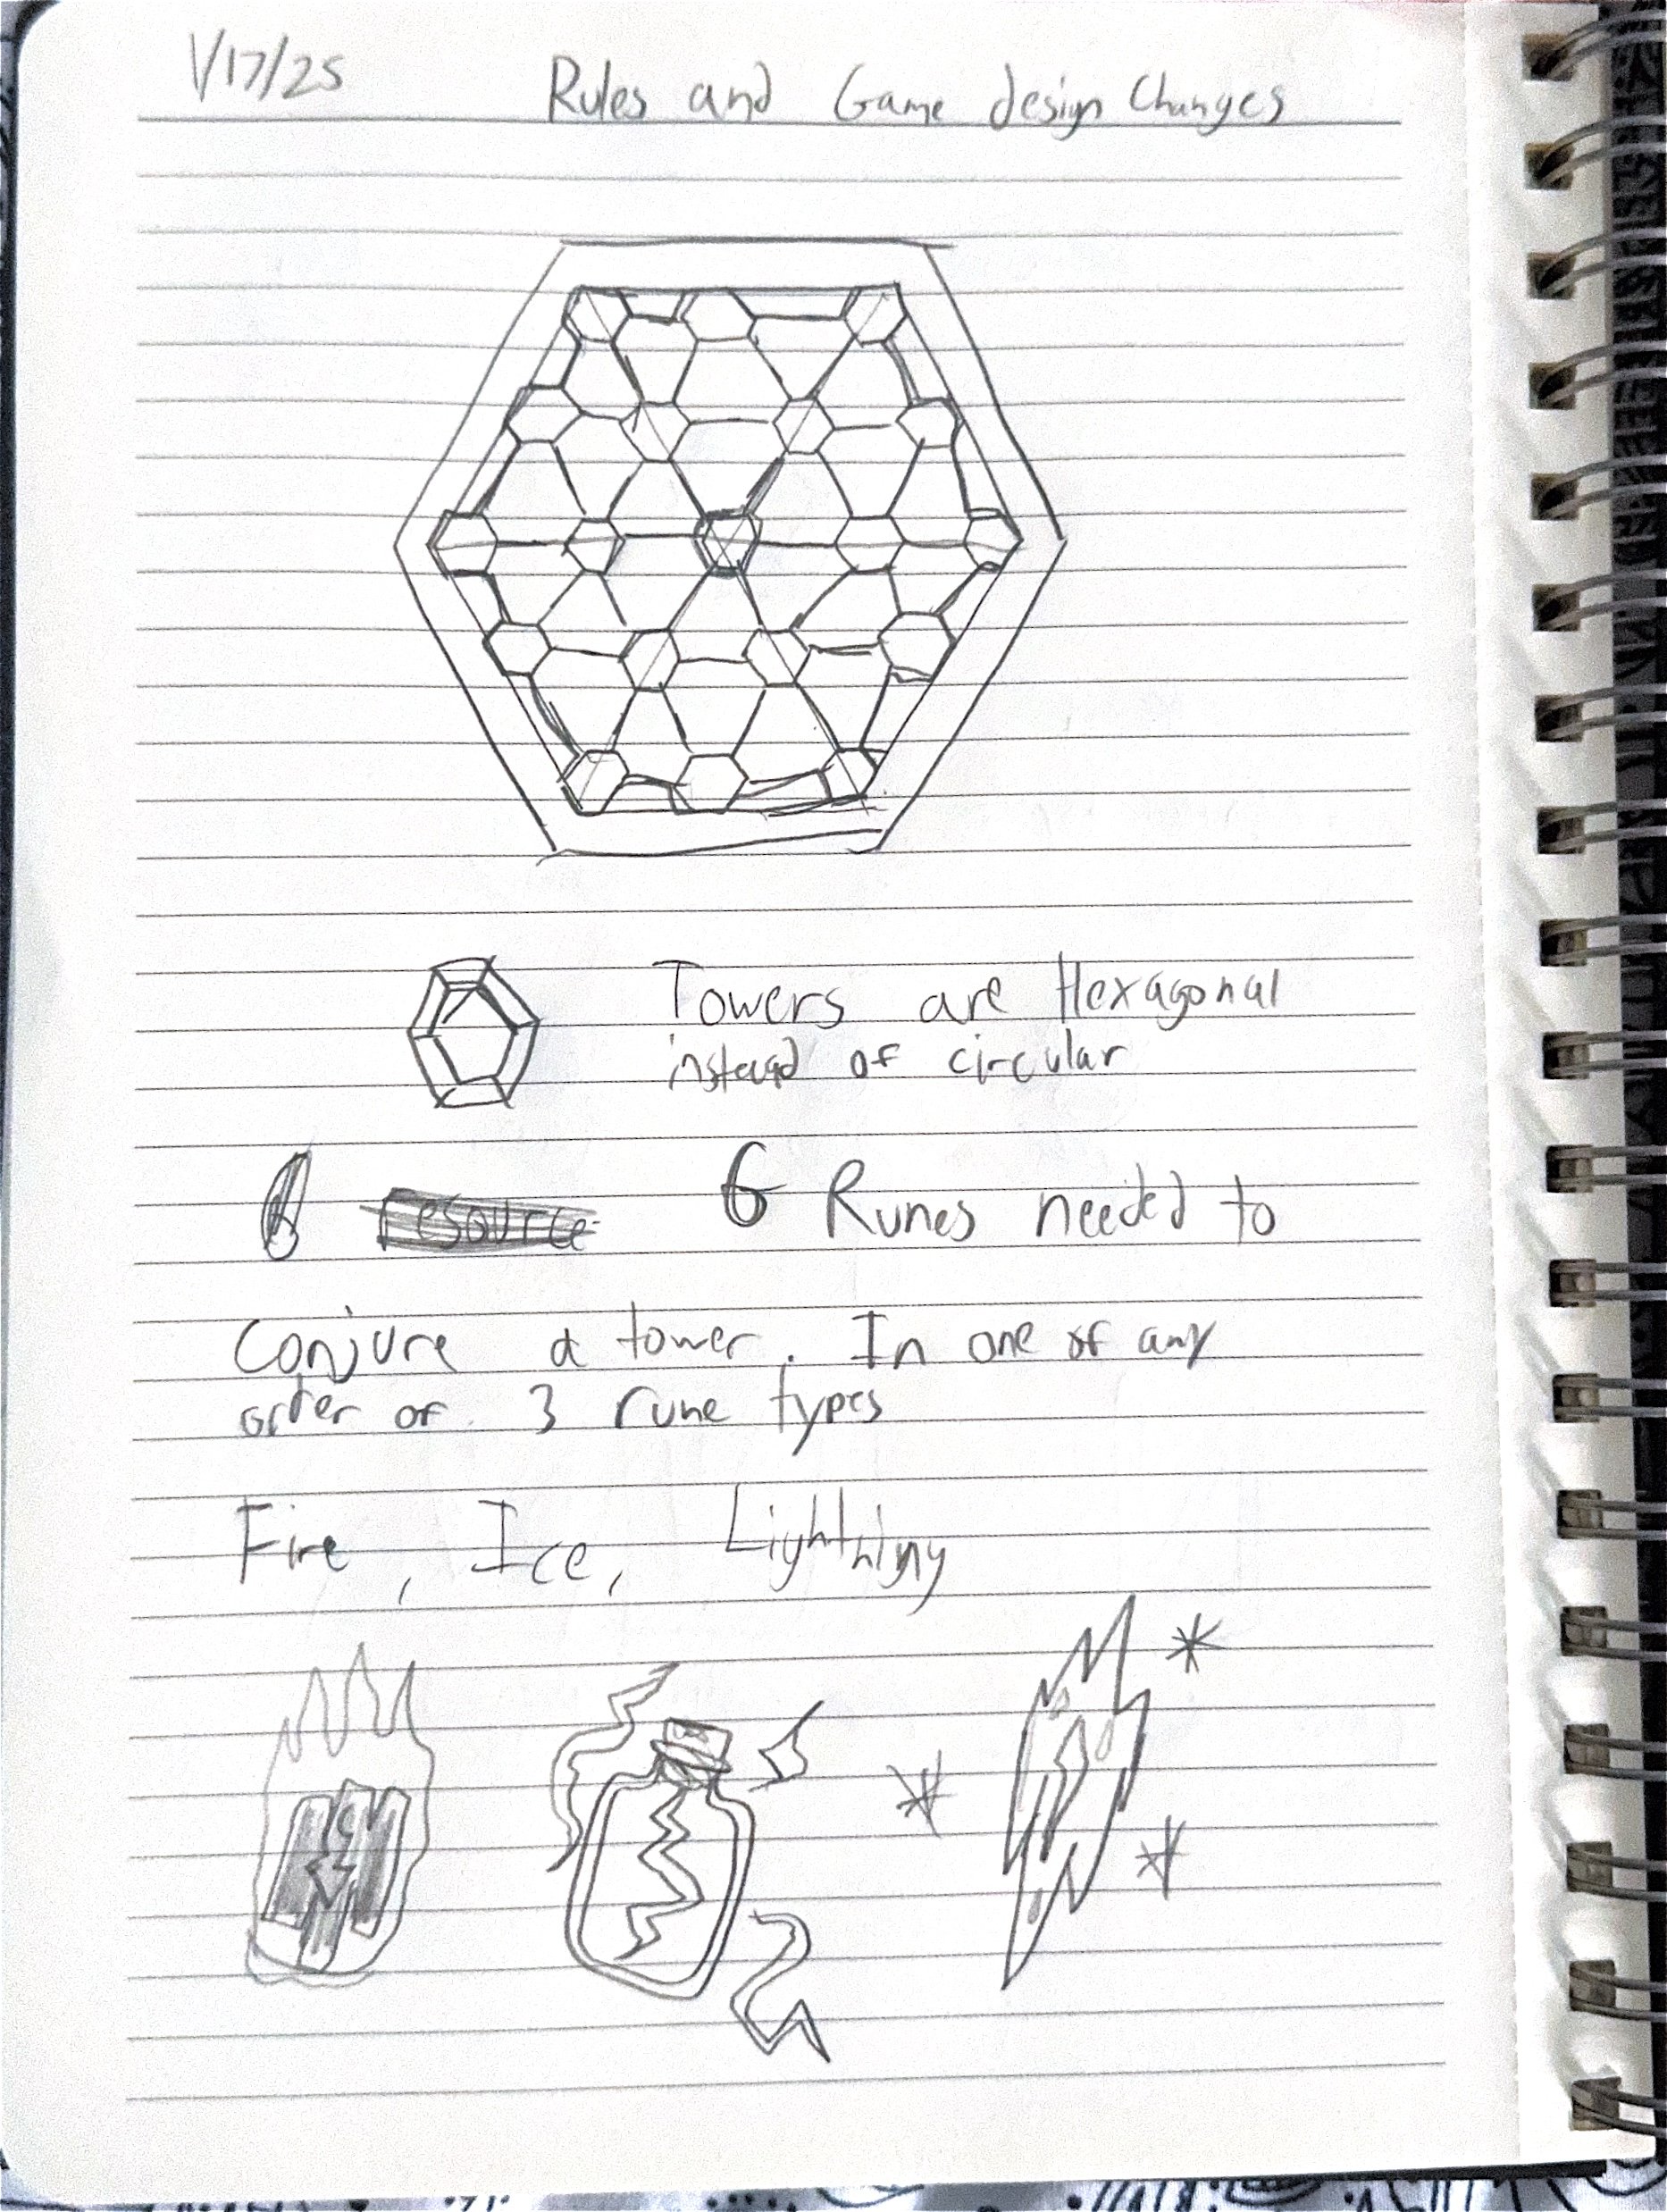 1/17/25 Rules and Game design Changes
Towers are Hexagonal
instead of circular
6 resource 6 Runes needed to
Conjure a tower. In one of any
order of 3 rune types
Fire, Ice, Lightning